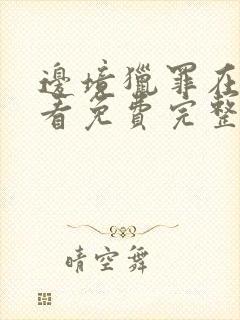 邊境獵罪在
看免費完整
晴空舞